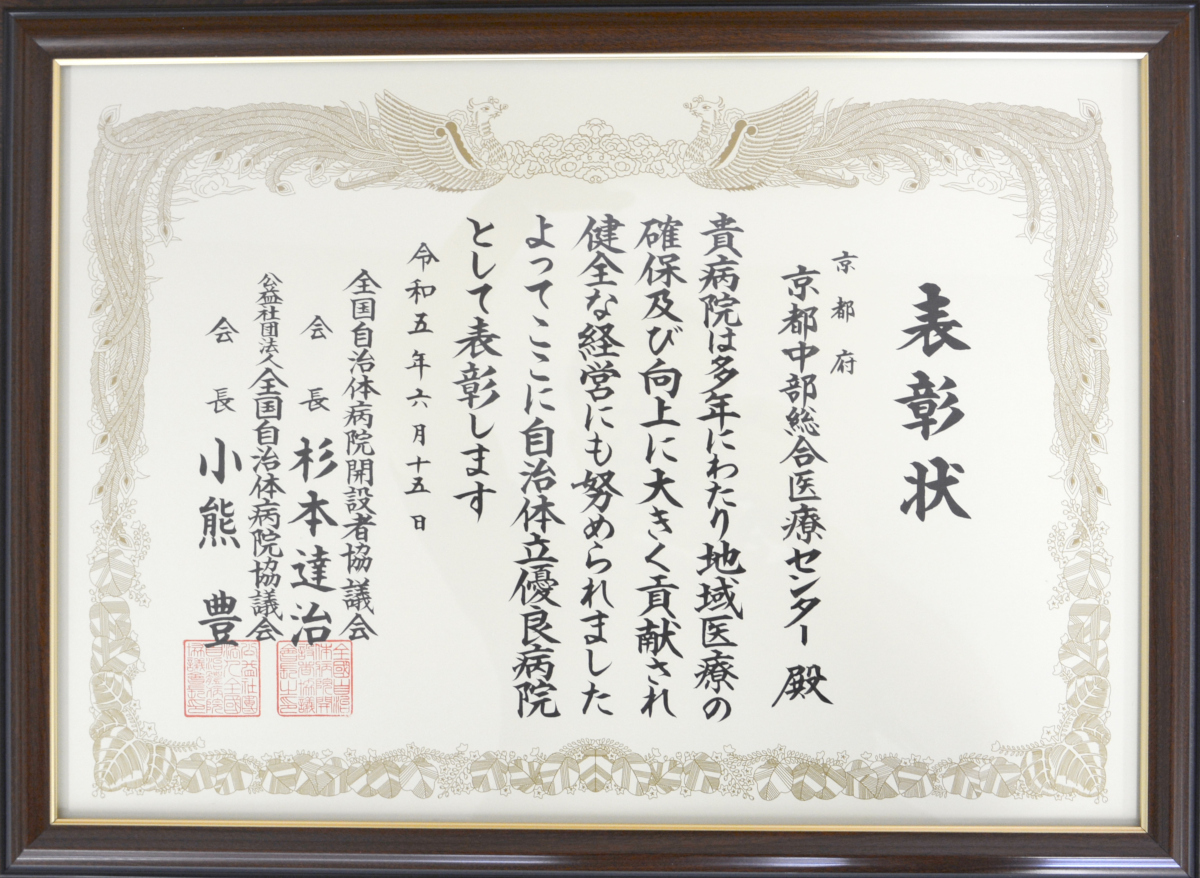 表彰状
京都府
京都中部総合医療センター 殿
貴病院は多年にわたり地域医療の
確保及び向上に大きく貢献され
健全な経営にも努められました
よってここに自治体立優良病院
として表彰します
令和五年六月十五日
全国自治体病院開設者協議会
会長 杉本達治
公益社団法人全国自治体病院協議会
会長 小熊 豊